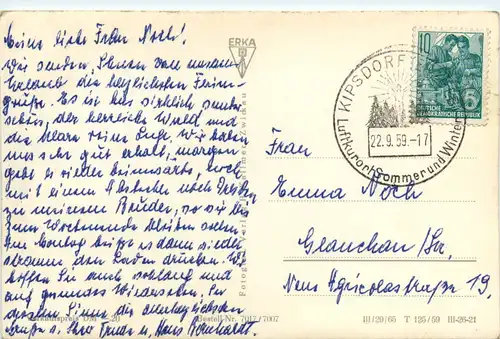 Meine liebe Frau Noch!
Wir senden Ihnen von unserem
Urlaub die herzlichsten Ferien-
grüße. Es ist hier wirklich wunder-
schön, der herrliche Wald und
die klare reine Luft. Wir haben
uns sehr gut erholt, morgen
geht es wieder heimwärts, doch
mit einem Abstecher nach
zu unserem Bruder, wo wir bis
zum Wochenende bleiben wollen.
Am Montag heißt es dann wieder
stramm den Laden drücken. Wir
hoffen Sie auch wohlauf und
auf gesundes Wiedersehen. Es
grüßen Sie nur die allerherzlichsten
Grüße v. Ihrer Trude u. Hans Bernhardt.
ERKA
KIPSDORF
Luftkurort Sommer und Winter
22.9.59.-17
10
6
DEUTSCHE
DEMOKRATISCHE REPUBLIK
Frau
Emma Noch
Glauchau/Sa.
Neue Agricolastraße 19,
Verkaufspreis DM -.20
Bestell-Nr. 7017/7007
III/29/65 T 125/59 III-26-21